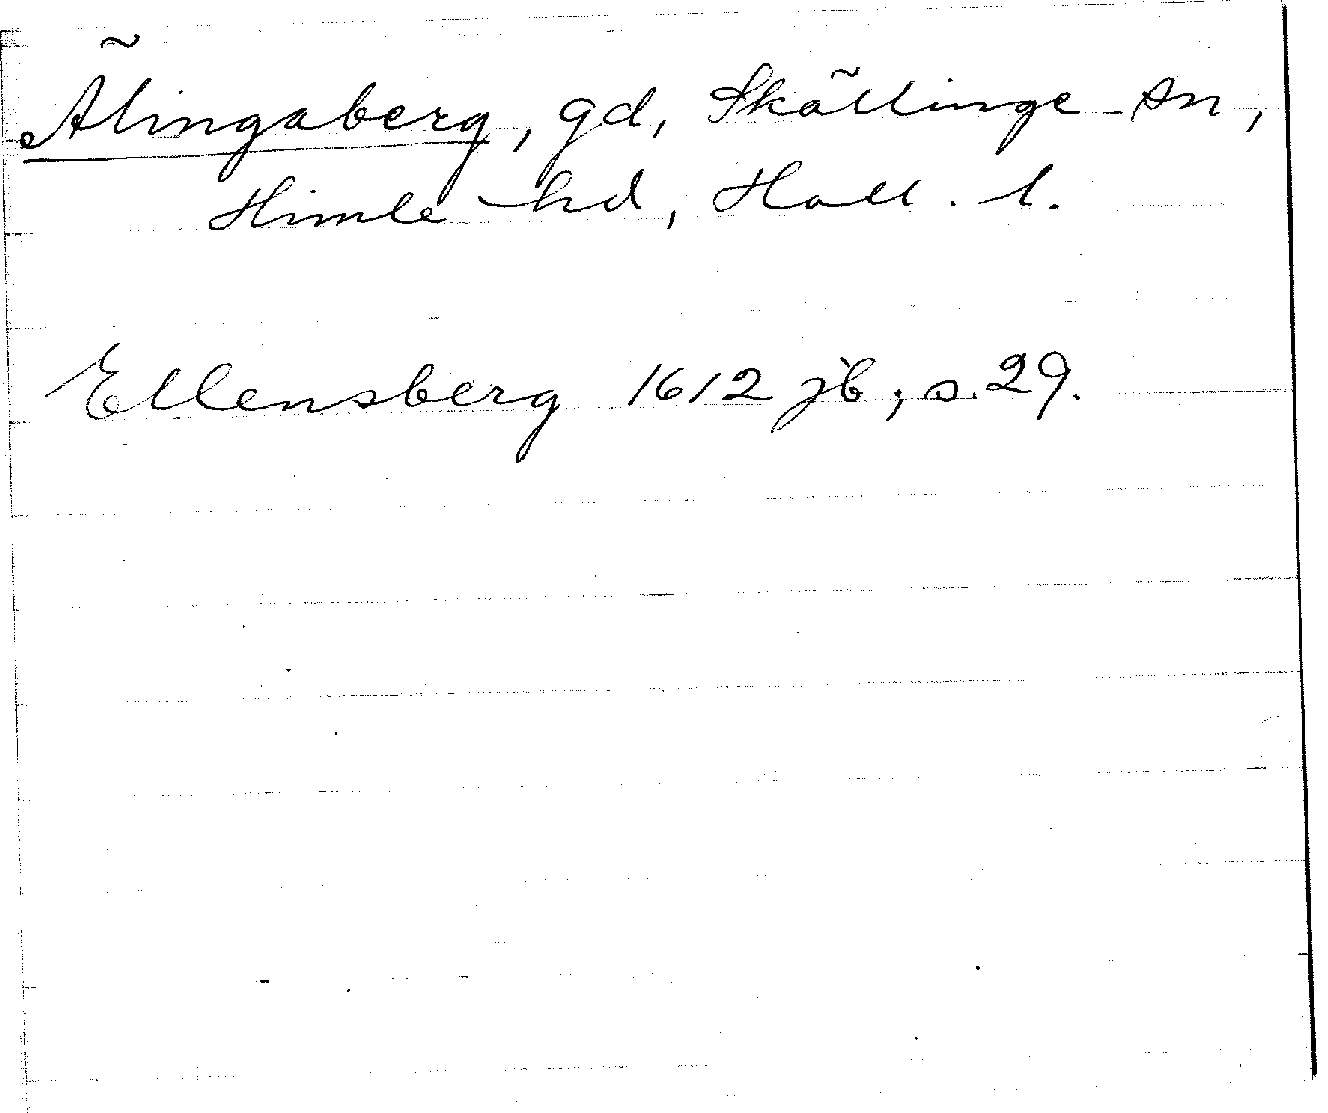 Älingaberg, gd, Skällinge sn,
Himle hd, Hall. l.
Ellensberg 1612 jb, s. 29.